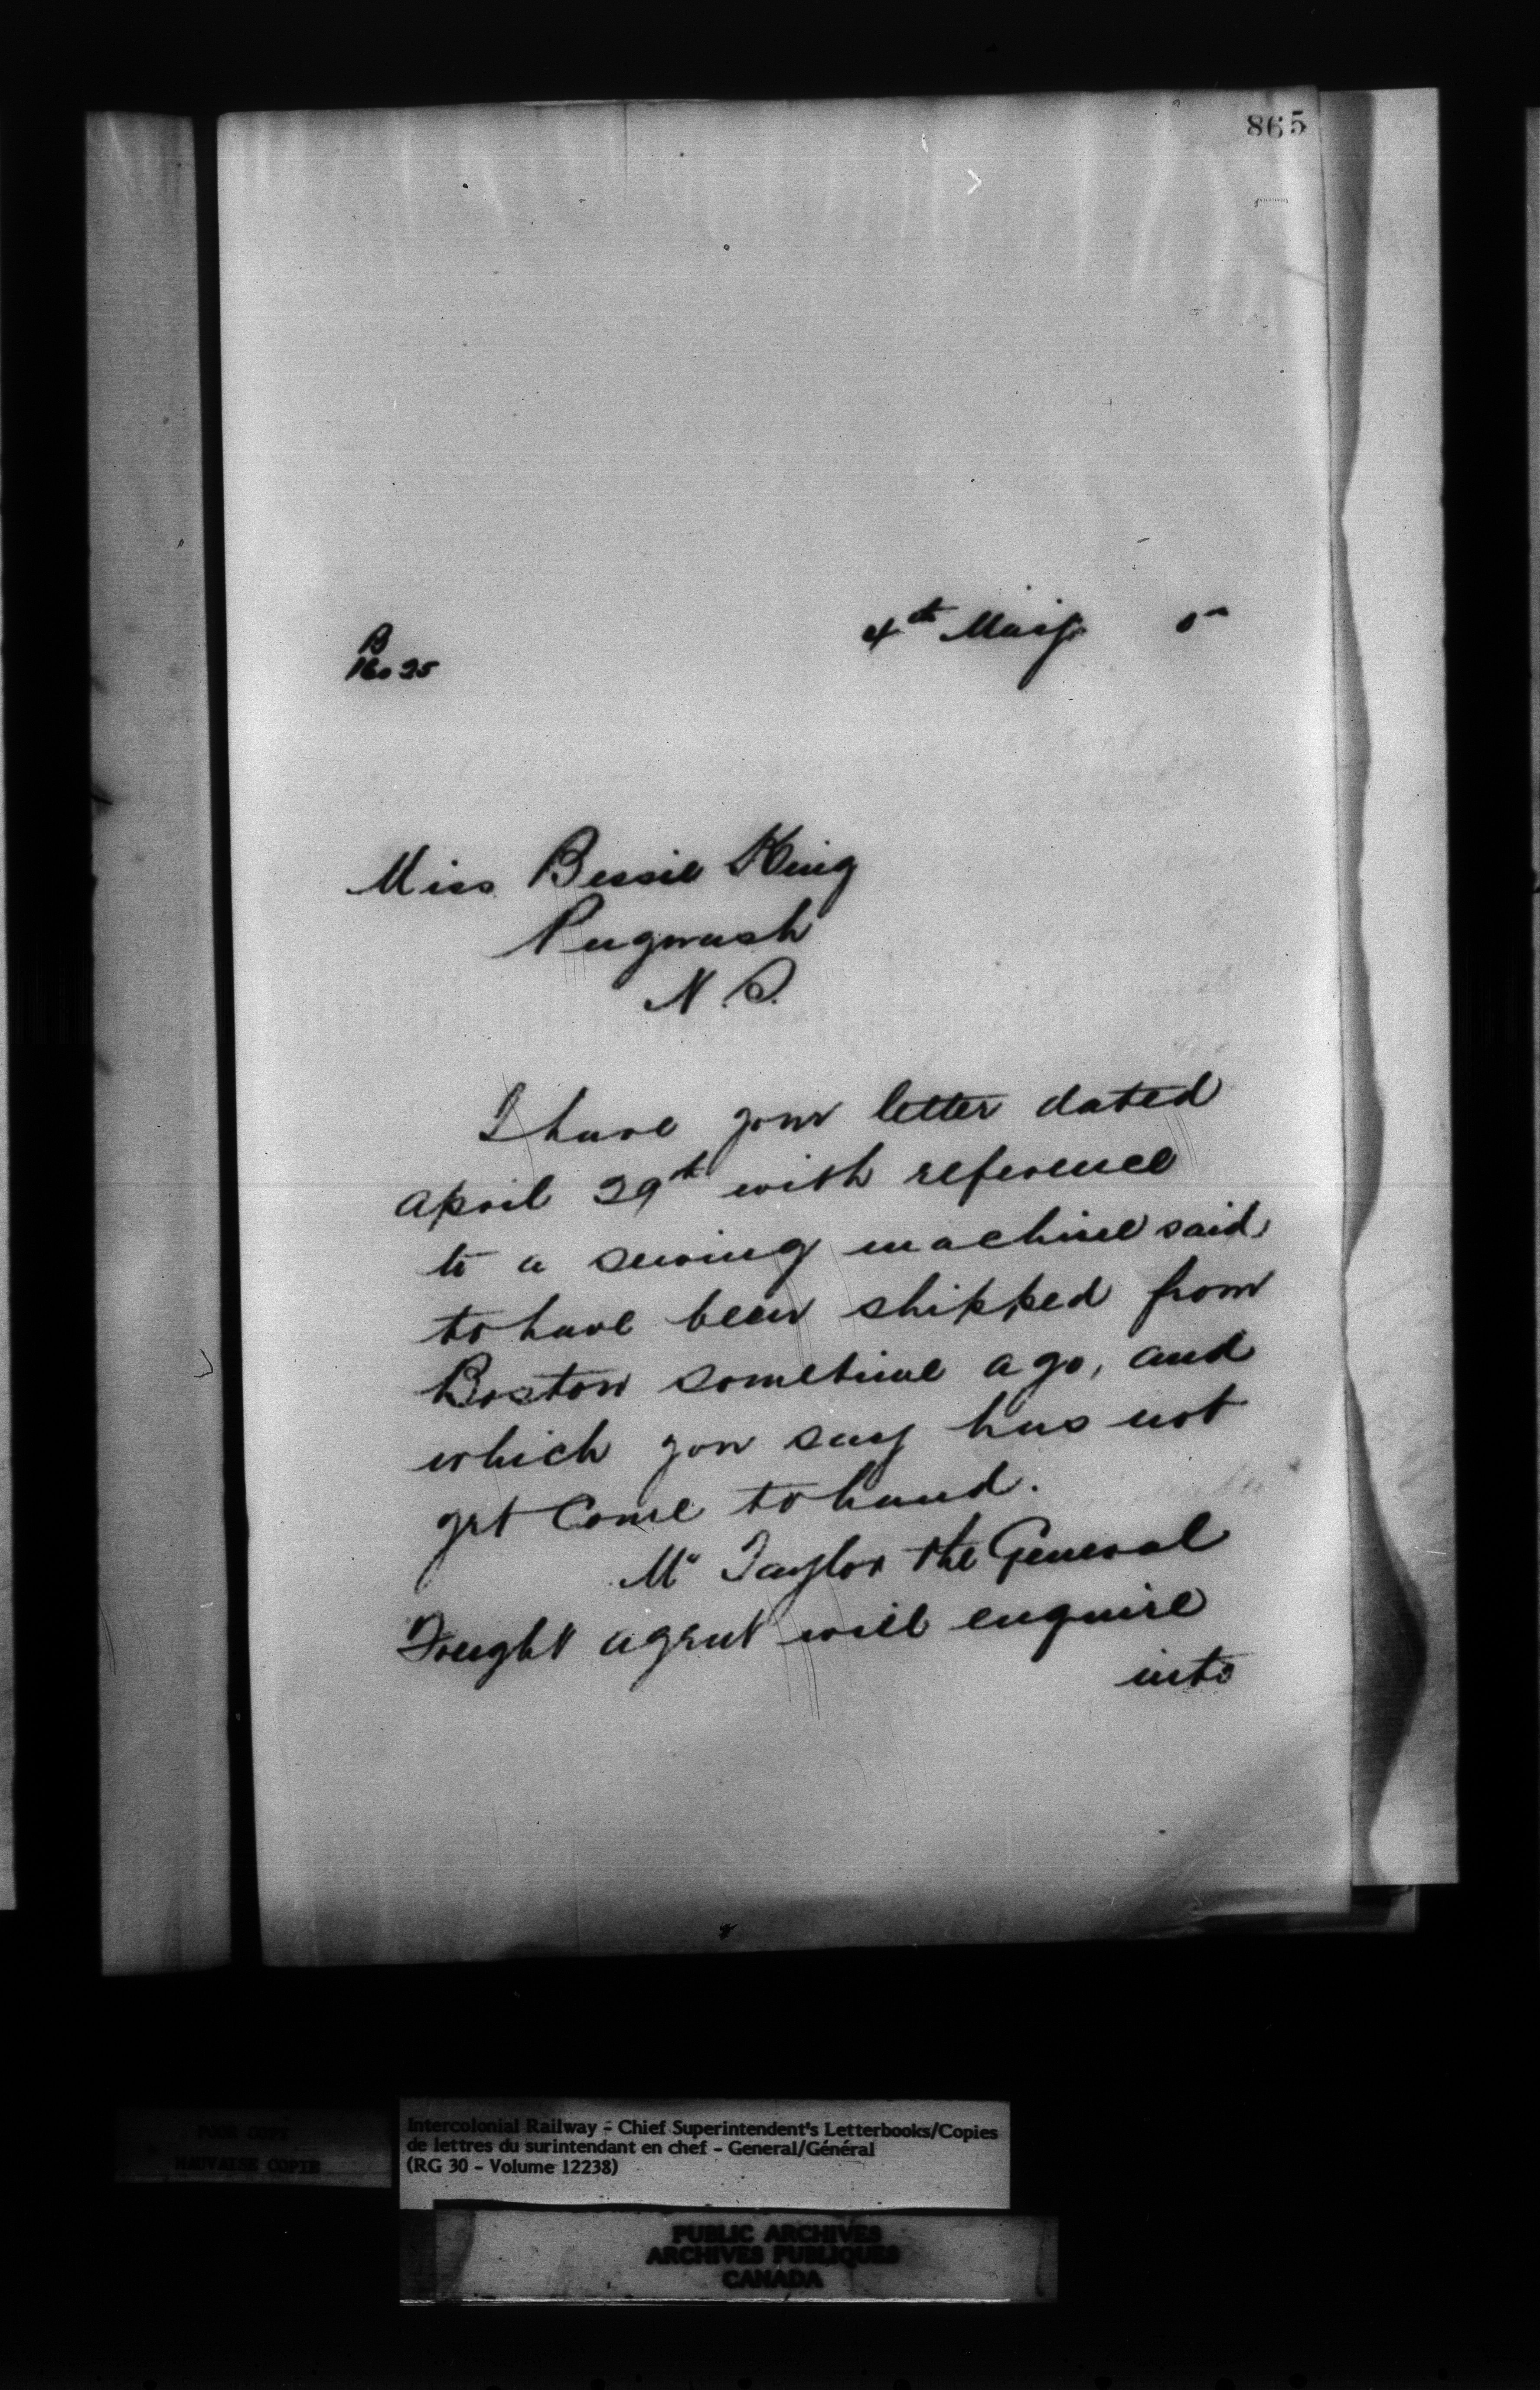 865
4th May 5
B
16025
Miss Bessie King
Pugwash
N.S.
I have your letter dated
April 29th with reference
to a sewing machine said
to have been shipped from
Boston sometime ago, and
which you say has not
yet come to hand.
Mr Taylor the General
Freight agent will enquire
into
POOR COPY
MAUVAISE COPIE
Intercolonial Railway - Chief Superintendent's Letterbooks/Copies
de lettres du surintendant en chef - General/Général
(RG 30 - Volume 12238)
PUBLIC ARCHIVES
ARCHIVES PUBLIQUES
CANADA